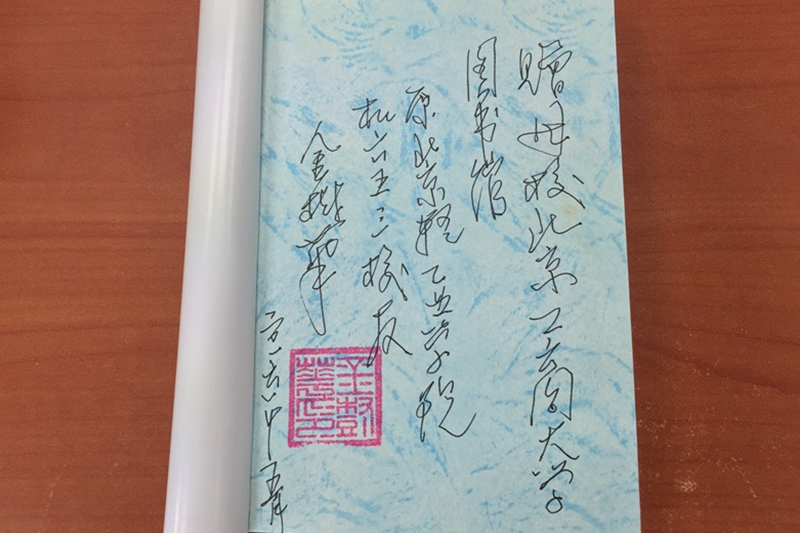 赠母校北京工商大学
图书馆
原北京轻工业学院
机六五三校友
金樹華
二〇一六年五月